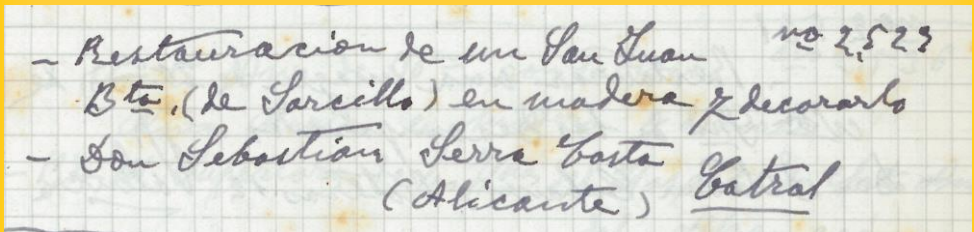 - Restauracion de un San Juan nº 2,523
Bta. (de Sarcillo) en madera y decorarlo
- Don Sebastian Serra Costa
(Alicante) Catral